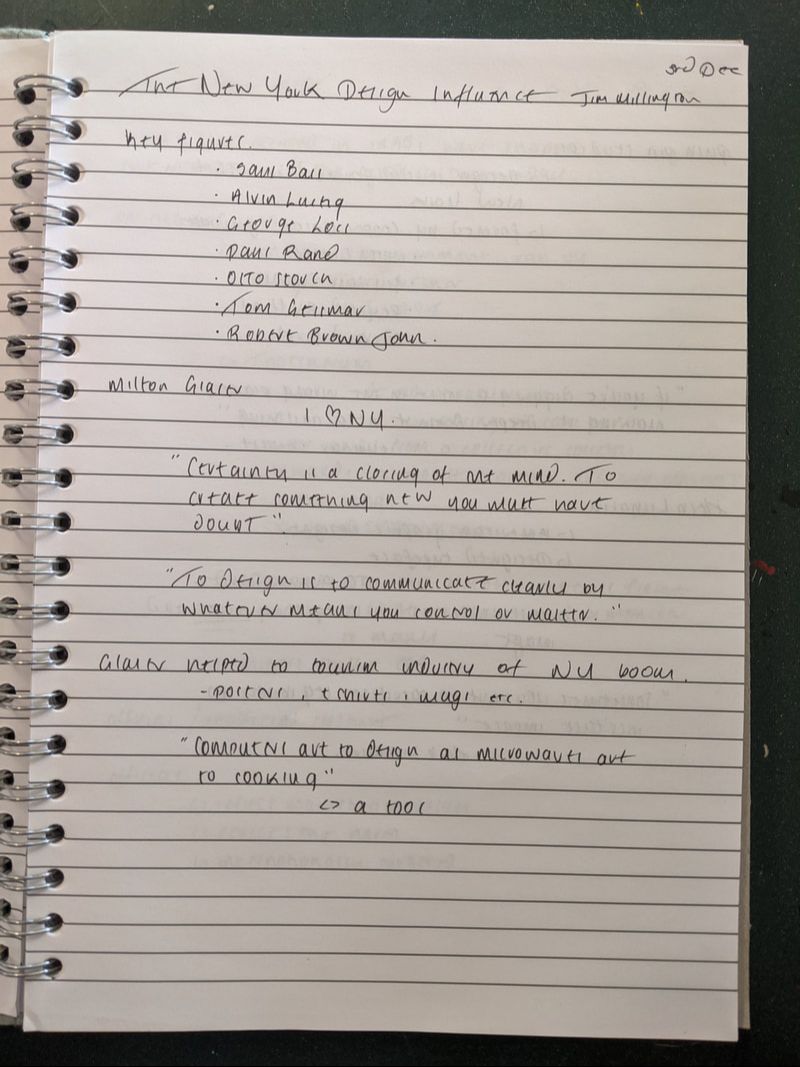 3rd Dec
The New York Design Influence Jim Millington
Key figures.
· Saul Bass
· Alvin Lustig
· George Lois
· Paul Rand
· Otto Storch
· Tom Geismar
· Robert Brownjohn.
Milton Glaser
I ♡ NY.
"Certainty is a closing of the mind. To
create something new you must have
doubt".
"To design is to communicate clearly by
whatever means you control or master."
Glaser helped to tourism industry of NY boom.
- posters, t shirts, mugs etc.
"Computers are to design as microwaves are
to cooking"
<> a tool